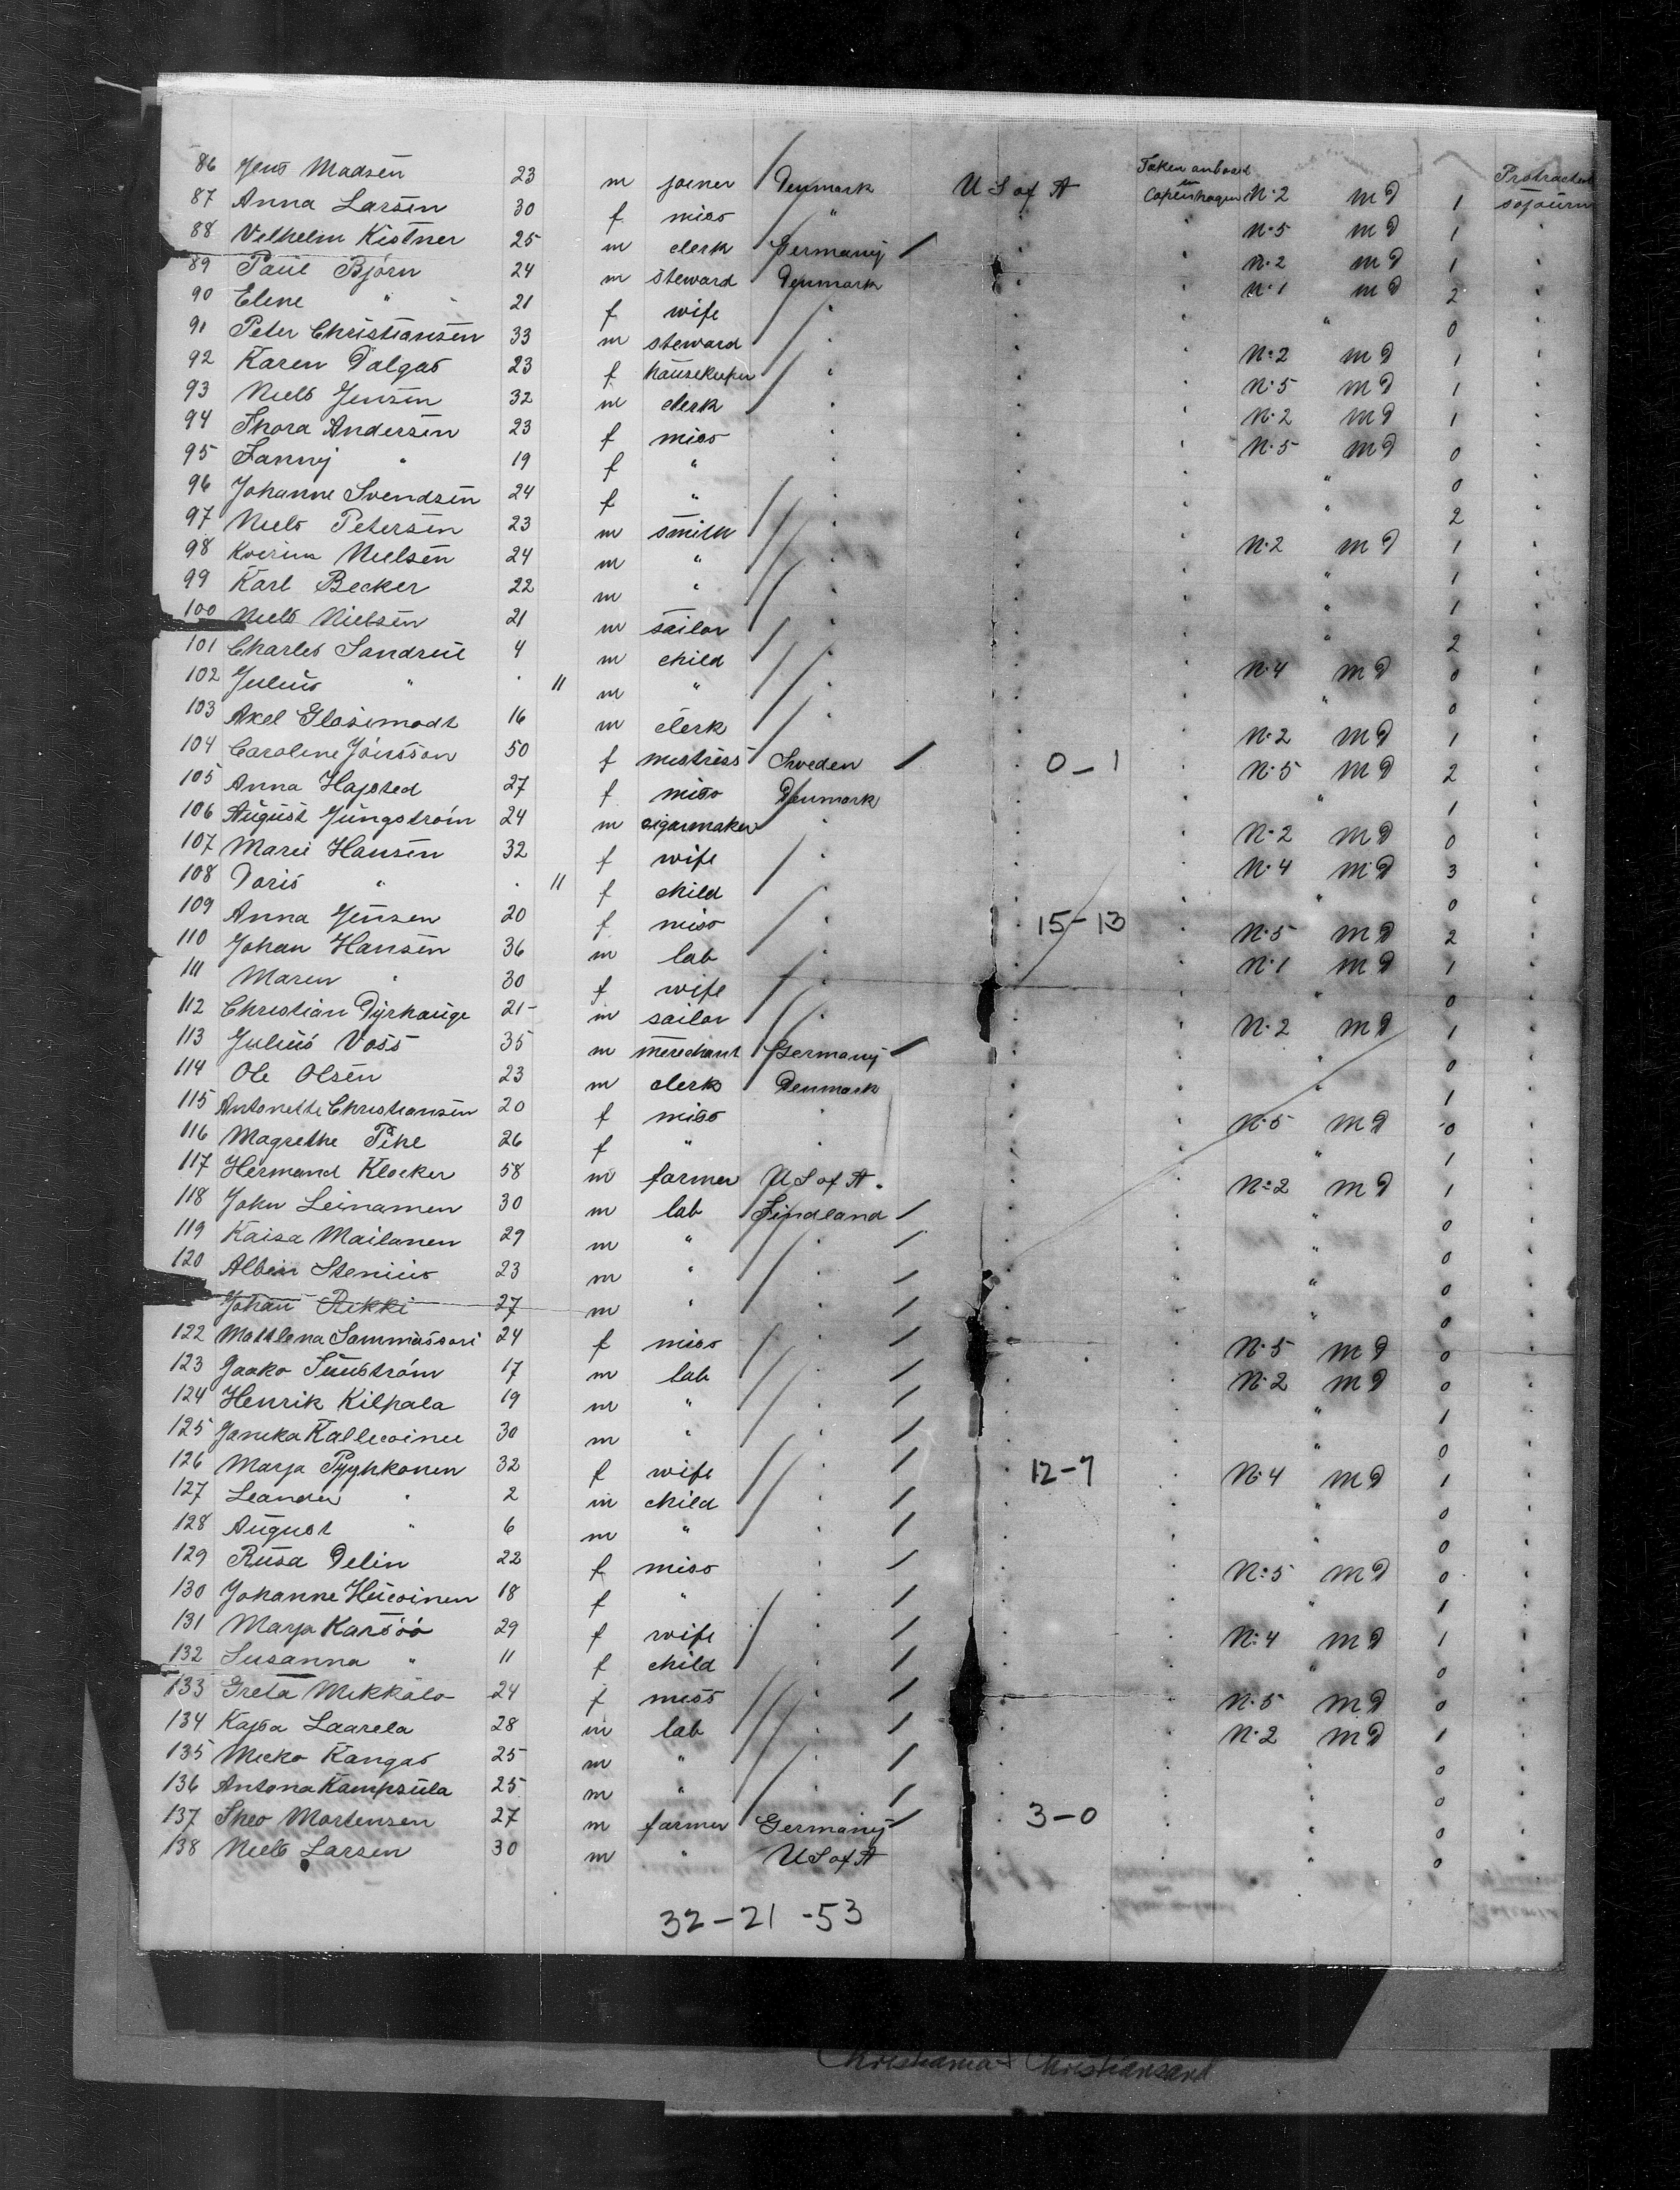 Taken onboard Protracted
86 Jens Madsen 23 m joiner Denmark U S of A in Copenhagen N:2 m D 1 sojourn
87 Anna Larsen 30 f miss " " " N:5 m D 1 "
88 Vilhelm Kistner 25 m clerk Germany " " N:2 m D 1 "
89 Paul Björn 24 m steward Denmark " " N:1 m D 2 "
90 Eline " 21 f wife " " " " 0 "
91 Peter Christiansen 33 m steward " " " N:2 m D 1 "
92 Karen Dalgas 23 f housekeeper " " " N:5 m D 1 "
93 Niels Jensen 32 m clerk " " " N:2 m D 1 "
94 Thora Andersen 23 f miss " " " N:5 m D 0 "
95 Fanny " 19 f " " " " " 0 "
96 Johanne Svendsen 24 f " " " " " 2 "
97 Niels Petersen 23 m smith " " " N:2 m D 1 "
98 Nielsen 24 m " " " " " 1 "
99 Karl Becker 22 m " " " " " 1 "
100 Niels Nielsen 21 m sailor " " " " 2 "
101 Charles 4 m child " " " N:4 m D 0 "
102 Julius " " 11 m " " " " " 0 "
103 Axel 16 m clerk " " " N:2 m D 1 "
104 Caroline Jönsson 50 f mistress Sweden 0-1 " N:5 m D 2 "
105 Anna 27 f miss Denmark " " " 1 "
106 August Jungström 24 m cigarmaker " " " N:2 m D 0 "
107 Marie Hansen 32 f wife " " " N:4 m D 3 "
108 Doris " " 11 f child " " " " 0 "
109 Anna Jensen 20 f miss " 15-13 " N:5 m D 2 "
110 Johan Hansen 36 m lab " " " N:1 m D 1 "
111 Maren " 30 f wife " " " " 0 "
112 Christian Dyrhauge 21 m sailor " " " N:2 m D 1 "
113 Julius Voss 35 m merechant Germany " " " 0 "
114 Ole Olsen 23 m clerk Denmark " " " 1 "
115 Antonette Christiansen 20 f miss " " " N:5 m D 0 "
116 Magrethe Pihl 26 f " " " " " 1 "
117 Hermand Klocker 58 m farmer U S of A. " " N:2 m D 1 "
118 John Leinamen 30 m lab Findland " " " 0 "
119 Kaisa Mailanen 29 m " " " " " 0 "
120 Albin Stenius 23 m " " " " " 0 "
Johan Rikki 27 m " " " " " 0 "
122 Mattlena Sammassari 24 f miss " " " N:5 m D 0 "
123 Jaako 17 m lab " " " N:2 m D 0 "
124 Henrik Kilpala 19 m " " " " " 1 "
125 30 m " " " " " 0 "
126 Marja Pyyhkonen 32 f wife " 12-7 " N:4 m D 1 "
127 Leander " 2 m child " " " " 0 "
128 August " 6 m " " " " " 0 "
129 Delin 22 f miss " " " N:5 m D 0 "
130 Johanne 18 f " " " " " 1 "
131 Marja Karsöö 29 f wife " " " N:4 m D 1 "
132 Susanna " 11 f child " " " " 0 "
133 Greta Mikkalo 24 f miss " " " N:5 m D 0 "
134 Kajsa Laarela 28 m lab " " " N:2 m D 1 "
135 Kangas 25 m " " " " " 0 "
136 Antona 25 m " " " " " 0 "
137 Theo Mortensen 27 m farmer Germany 3-0 " " 0 "
138 Niels Larsen 30 m " U S of A " 0
32-21-53
Christiania + Christiansand